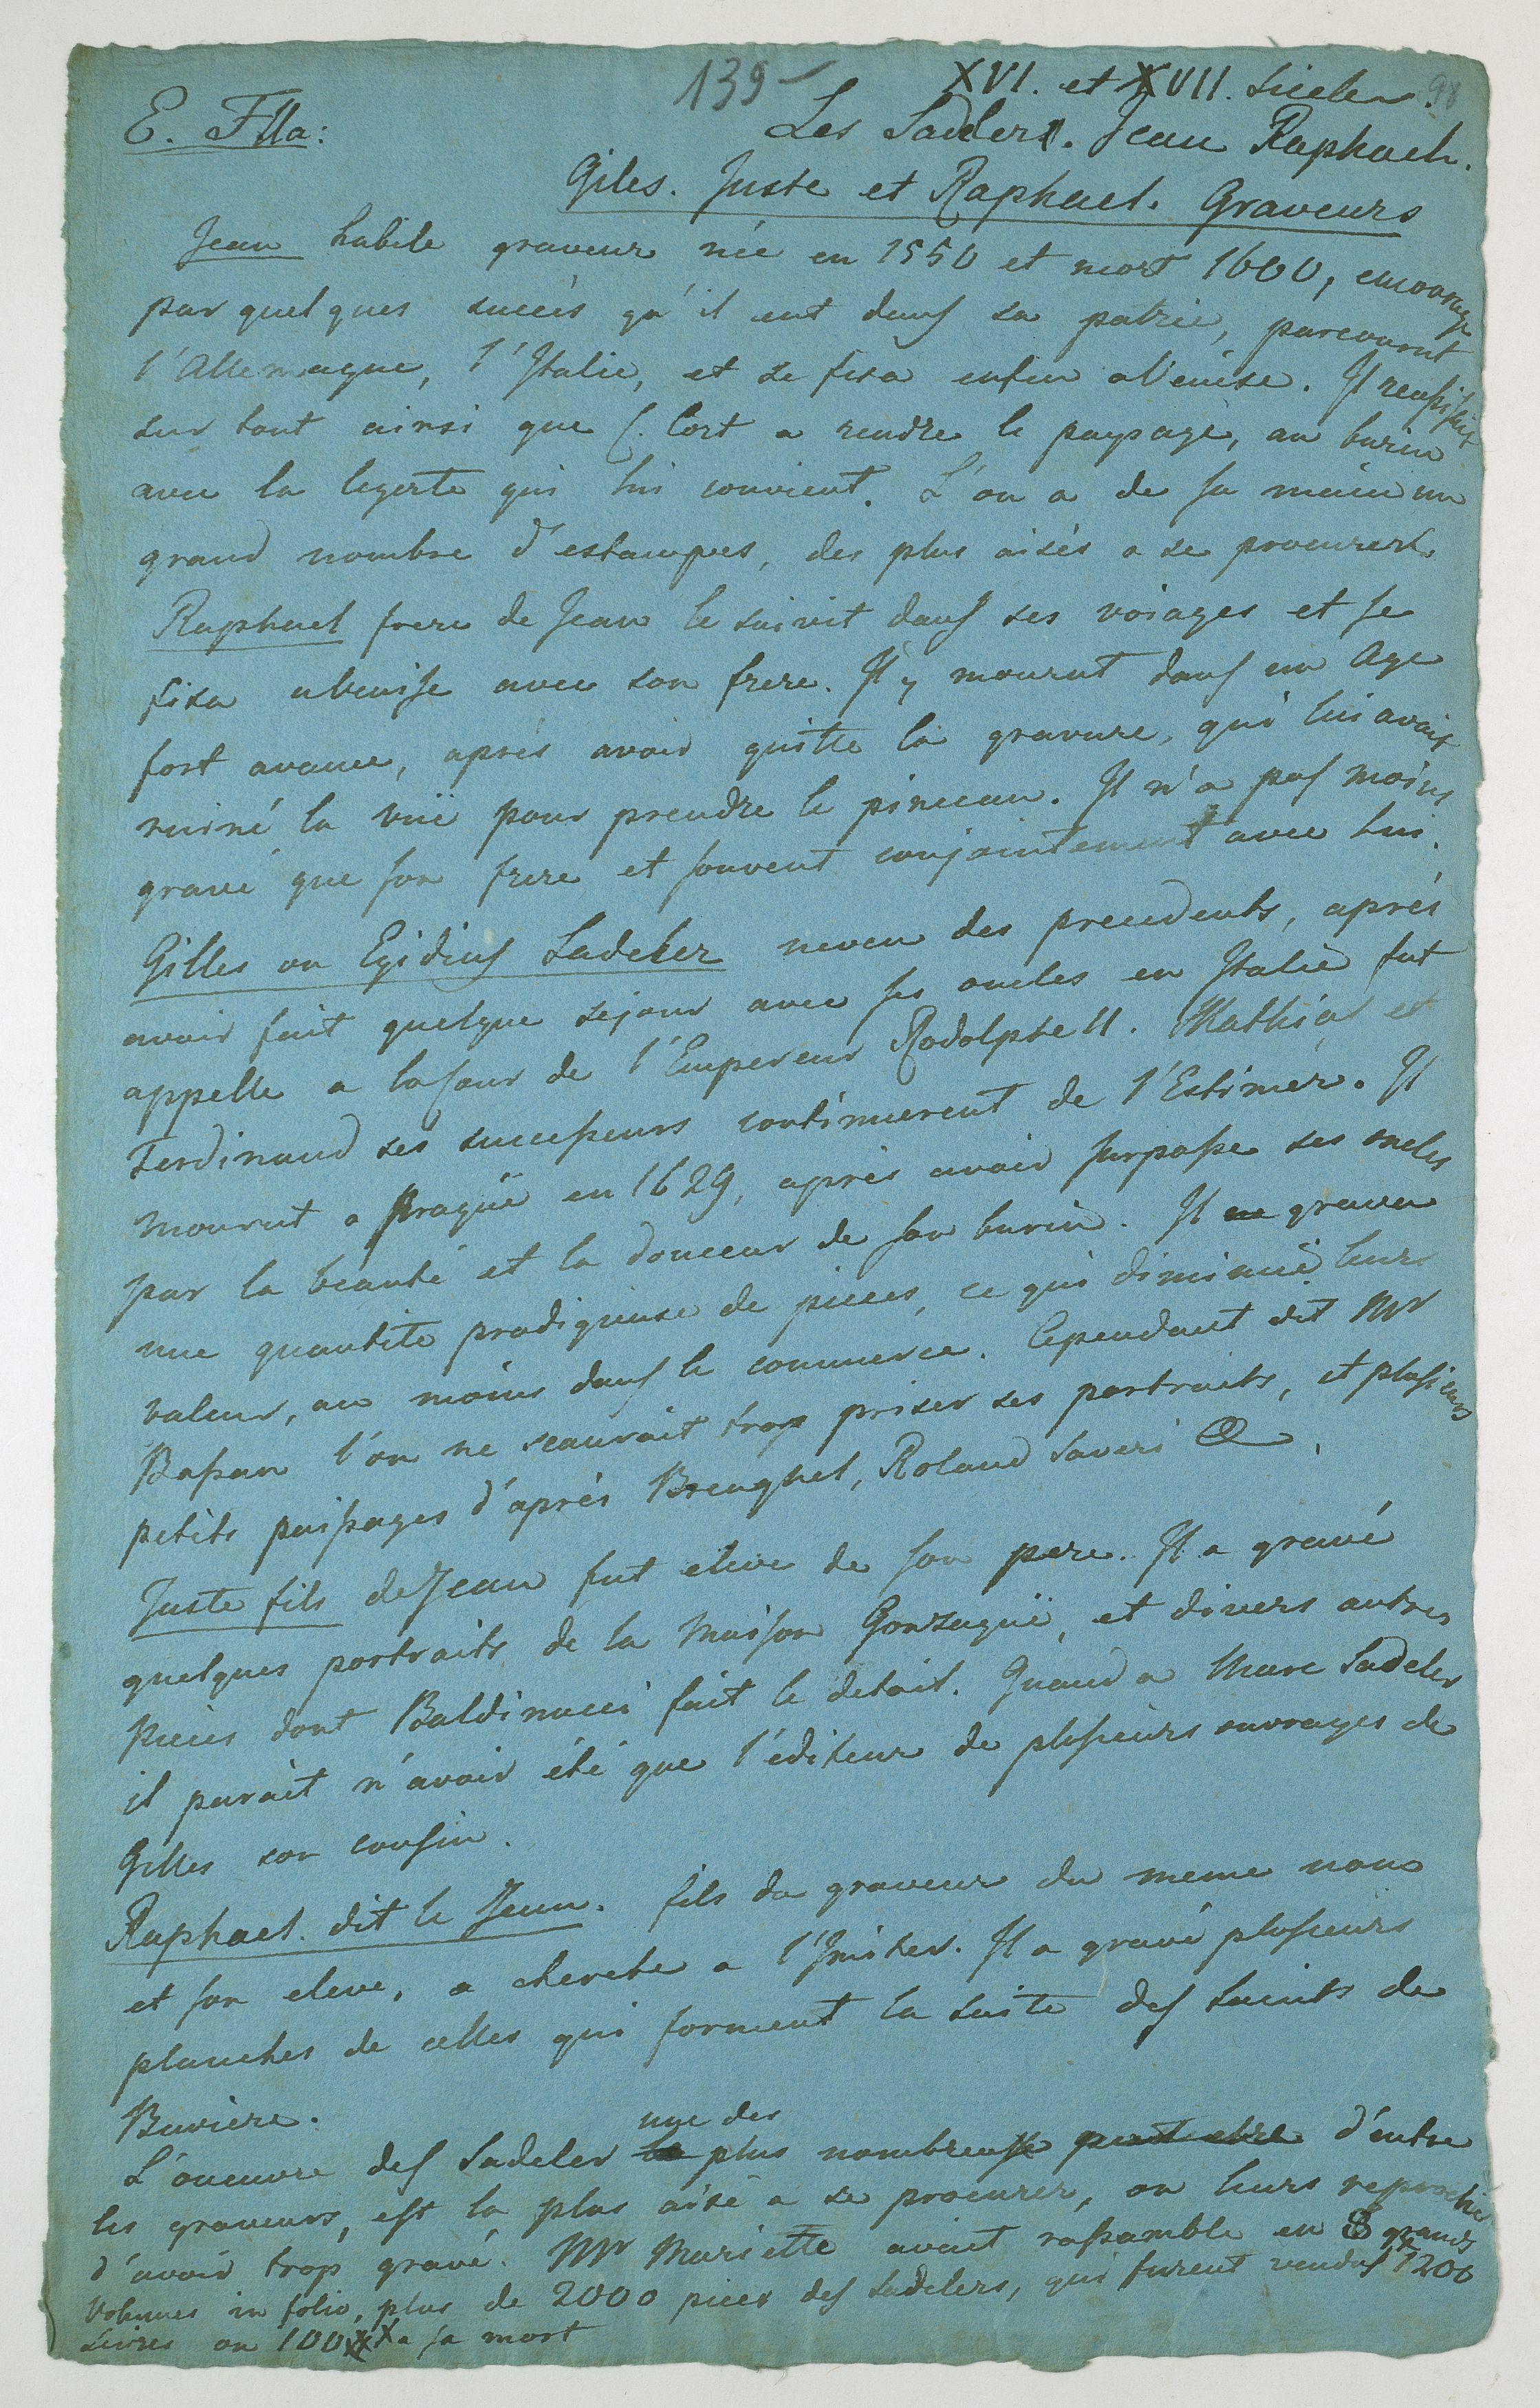 139 -
98
XVI. et XVII. Siecles.
E. Flla:
Les Sadelers. Jean Raphael.
Giles. Juste et Raphael. Graveurs
Jean habile graveur née en 1550 et mort 1600, encouragé
par quelques succés qu'il eut dans sa patrie, parcourut
l'Allemagne, l'Italie, et se fixa enfin a Venise. Il reussissait
sur tout ainsi que C. Cort a rendre le paysage, au burin
avec la legerte qui lui convient. L'on a de sa main un
grand nombre d'estampes, des plus aisés a se procurer.
Raphael frere de Jean le suivit dans ses voiages et se
fixa a Venise avec son frere. Il y mourut dans un age
fort avancé, aprés avoir quitte la gravure, qui lui avait
ruiné la vuë pour prendre le pinceau. Il n'a pas moins
gravé que son frere et souvent conjointement avec lui.
Gilles ou Egidius Sadeler neveu des precedents, aprés
avoir fait quelque sejour avec ses oncles en Italie fut
appelle a la Cour de l'Empereur Rodolphe II. Mathias et
Ferdinand ses successeurs continuerent de l'Estimer. Il
mourut a Prague en 1629, aprés avoir surpasse ses oncles
par la beauté et la douceur de son burin. Il grava
une quantité prodigieuse de pieces, ce qui diminuë leurs
valeur, au moins dans le commerce. Cependant dit Mr
Basan l'on ne scaurait trop priser ses portraits, et plusieurs
petits paisages d'aprés Breughel, Roland Saveri &.
Juste fils de Jean fut eleve de son pere. Il a gravé
quelques portraits de la Maison Gonzaguë, et divers autres
pieces dont Baldinucci fait le detail. Quand a Marc Sadeler
il parait n'avoir été que l'éditeur de plusieurs ouvrages de
Gilles son cousin.
Raphael. dit le Jeun. fils du graveur du meme nom
et son eleve, a cherche a l'Imiter. Il a gravé plusieurs
planches de celles qui forment la suite des Saints de
Baviere.
L'oueuvre des Sadeler une des plus nombreuse peut etre d'entre
les graveurs, est la plus aisé a se procurer, on leurs reproche
d'avoir trop gravé. Mr Mariette avait rassamble en 8 grands
Volumes in folio, plus de 2000 pieces des Sadelers, qui furent vendus 1200
Livres ou 100 a sa mort